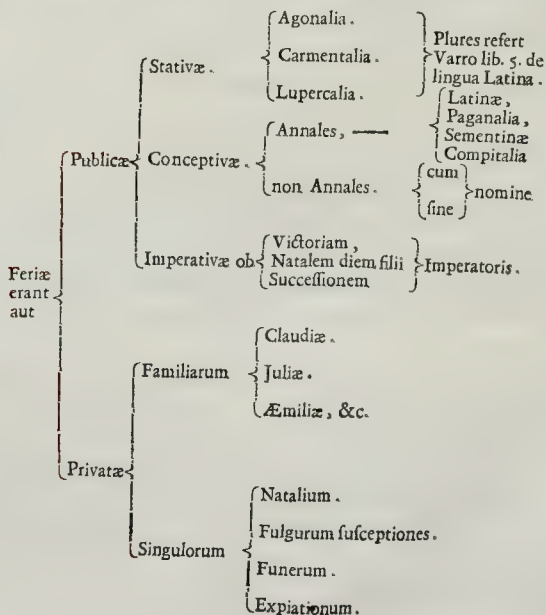 Feriæ
erant
aut
Publicæ
Stativæ.
Agonalia.
Carmentalia.
Lupercalia.
Plures refert
Varro lib. 5. de
lingua Latina.
Conceptivæ.
Annales,
Latinæ,
Paganalia,
Sementinæ
Compitalia
non Annales.
cum
ſine
nomine
Imperativæ ob
Victoriam,
Natalem diem filii
Succeſſionem
Imperatoris.
Privatæ
Familiarum
Claudiæ.
Juliæ.
Æmiliæ, &c.
Singulorum
Natalium.
Fulgurum ſuſceptiones.
Funerum.
Expiationum.